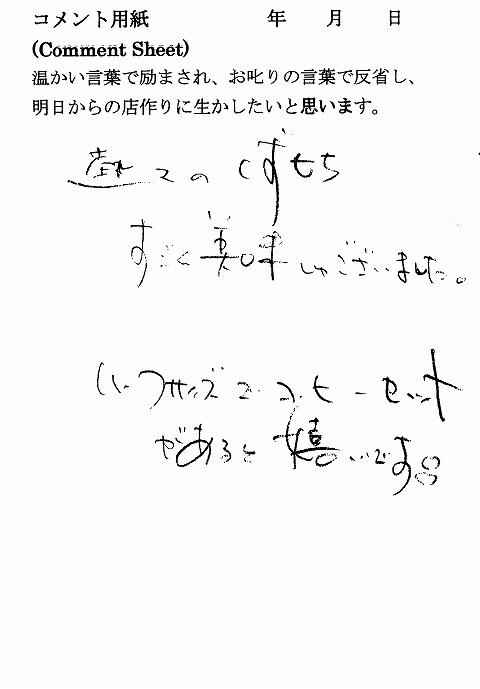 コメント用紙 年 月 日
(Comment Sheet)
温かい言葉で励まされ、お叱りの言葉で反省し、
明日からの店作りに生かしたいと思います。
くずもち
すごく美味しゅうございました。
ハーフサイズでコーヒーセット
があると嬉いです